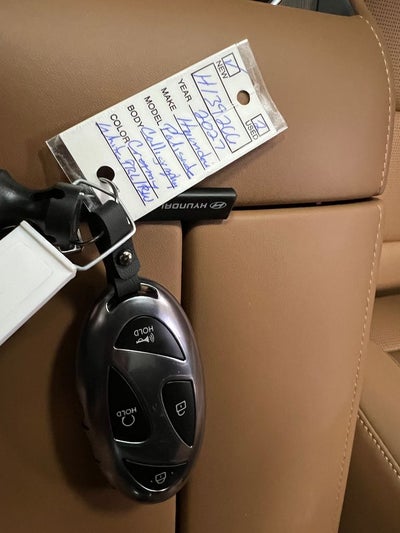 NEW USED
H139266
YEAR 2027
MAKE Hyundai
MODEL Palisade
BODY Calligraphy
COLOR Creamy
White
HYUNDAI
HOLD
HOLD